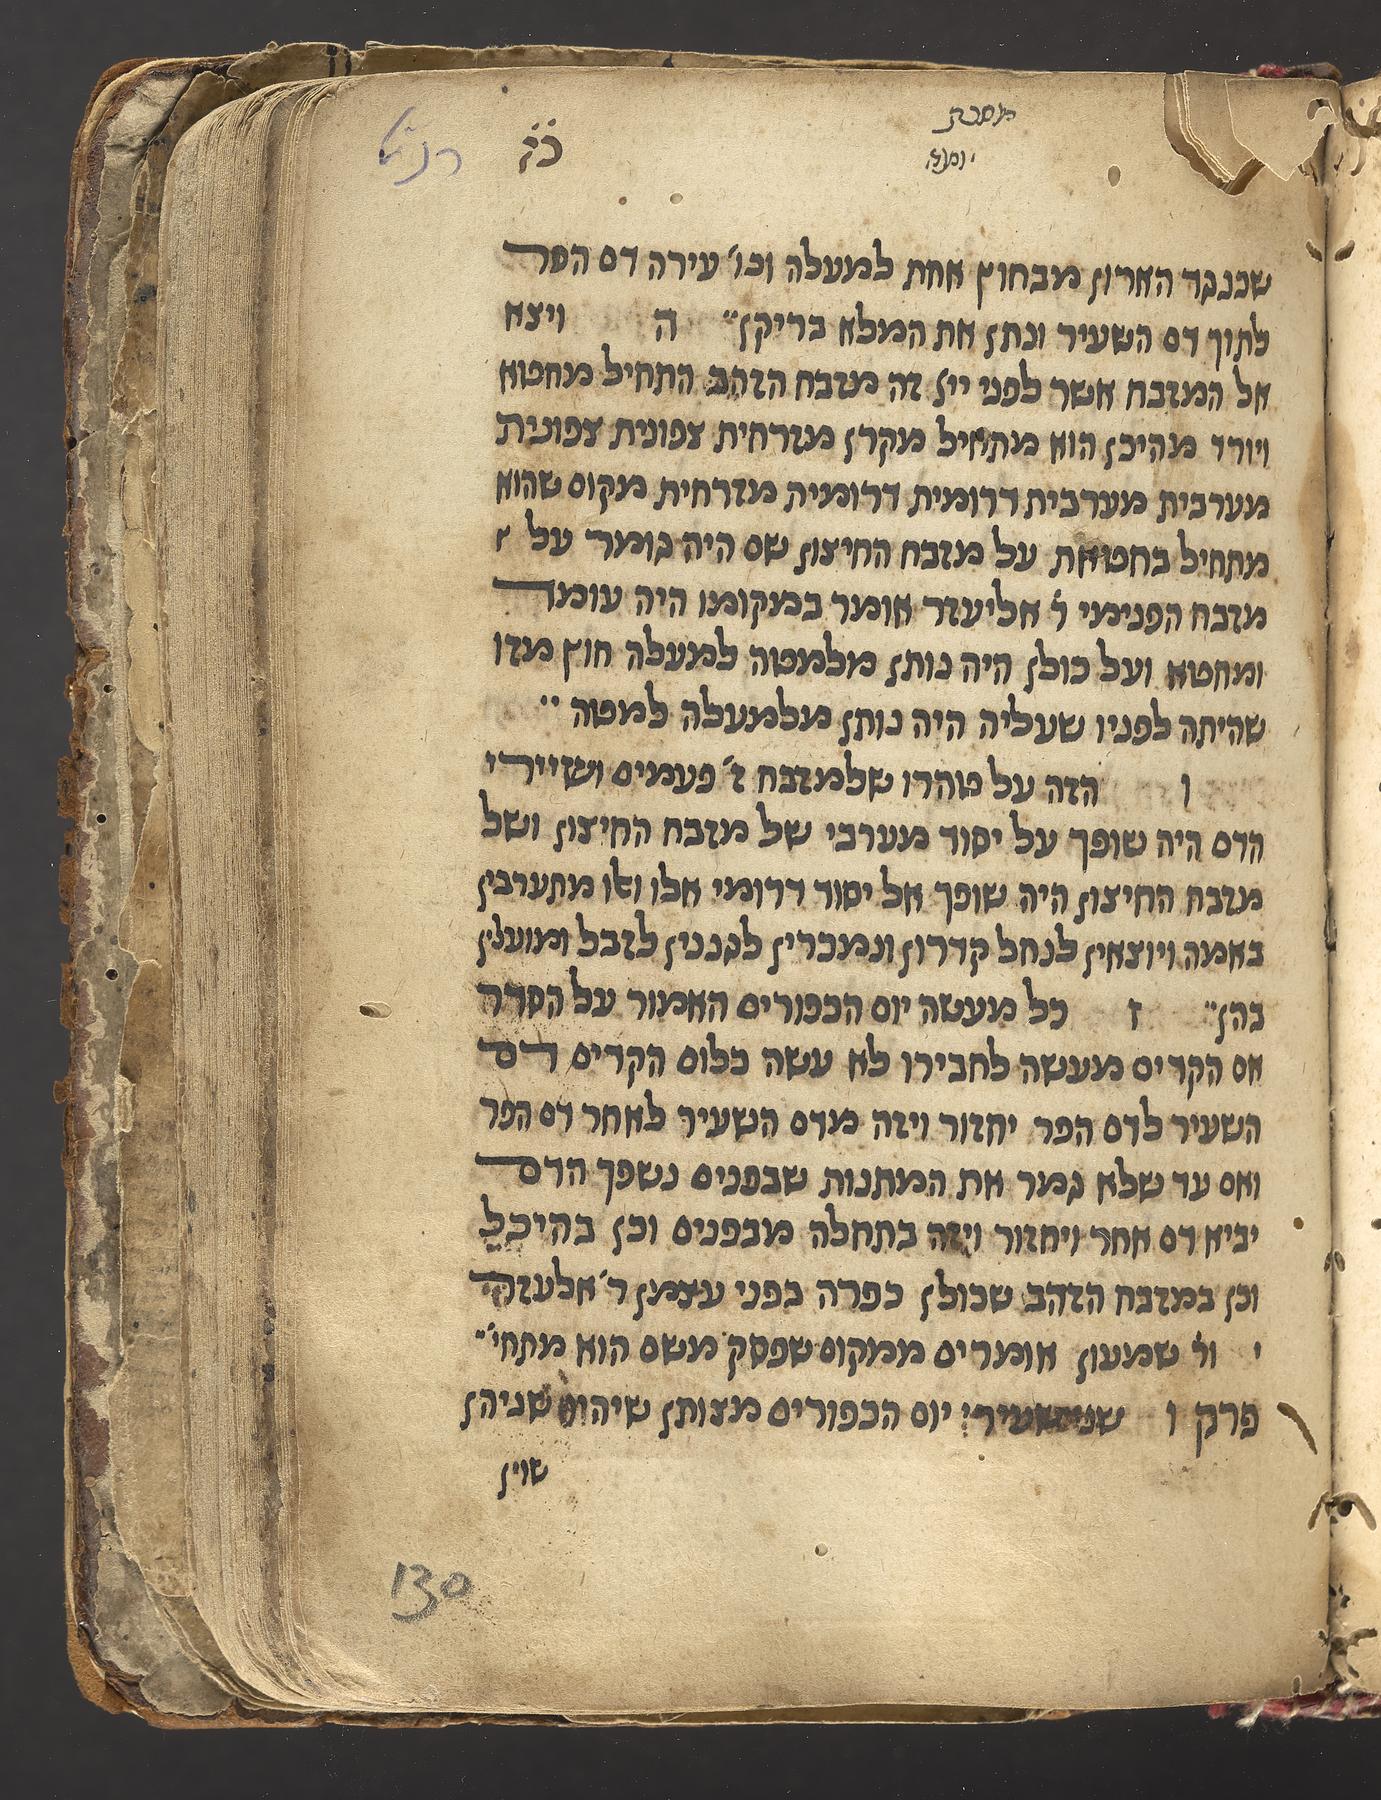 מסכת
יומא
שכנגד הארון מבחוץ אחת למעלה וכו' עירה דם הפר
לתוך דם השעיר ונתן את המלא בריקן ה ויצא
אל המזבח אשר לפני ייי זה מזבח הזהב התחיל מחטא
ויורד מהיכן הוא מתחיל מקרן מזרחית צפונית צפונית
מערבית מערבית דרומית דרומית מזרחית מקום שהוא
מתחיל בחטאת על מזבח החיצון שם היה גומר על
מזבח הפנימי ר' אליעזר אומר במקומו היה עומד
ומחטא ועל כולן היה נותן מלמטה למעלה חוץ מזו
שהיתה לפניו שעליה היה נותן מלמעלה למטה
ו הזה על טהרו שלמזבח ז' פעמים ושיירי
הדם היה שופך על יסוד מערבי של מזבח החיצון ושל
מזבח החיצון היה שופך אל יסוד דרומי אלו ואלו מתערבין
באמה ויוצאין לנחל קדרון ונמכרין לגננין לזבל ומועלין
בהן ז כל מעשה יום הכפורים האמור על הסדר
אם הקדים מעשה לחבירו לא עשה כלום הקדים דם
השעיר לדם הפר יחזור ויזה מדם השעיר לאחר דם הפר
ואם עד שלא גמר את המתנות שבפנים נשפך הדם
יביא דם אחר ויחזור ויזה בתחלה מבפנים וכן בהיכל
וכן במזבח הזהב שכולן כפרה בפני עצמן ר' אלעזר
ור' שמעון אומרים ממקום שפסק משם הוא מתחי'
פרק ו שני שעירי יום הכפורים מצותן שיהו שניהן
שוין
130